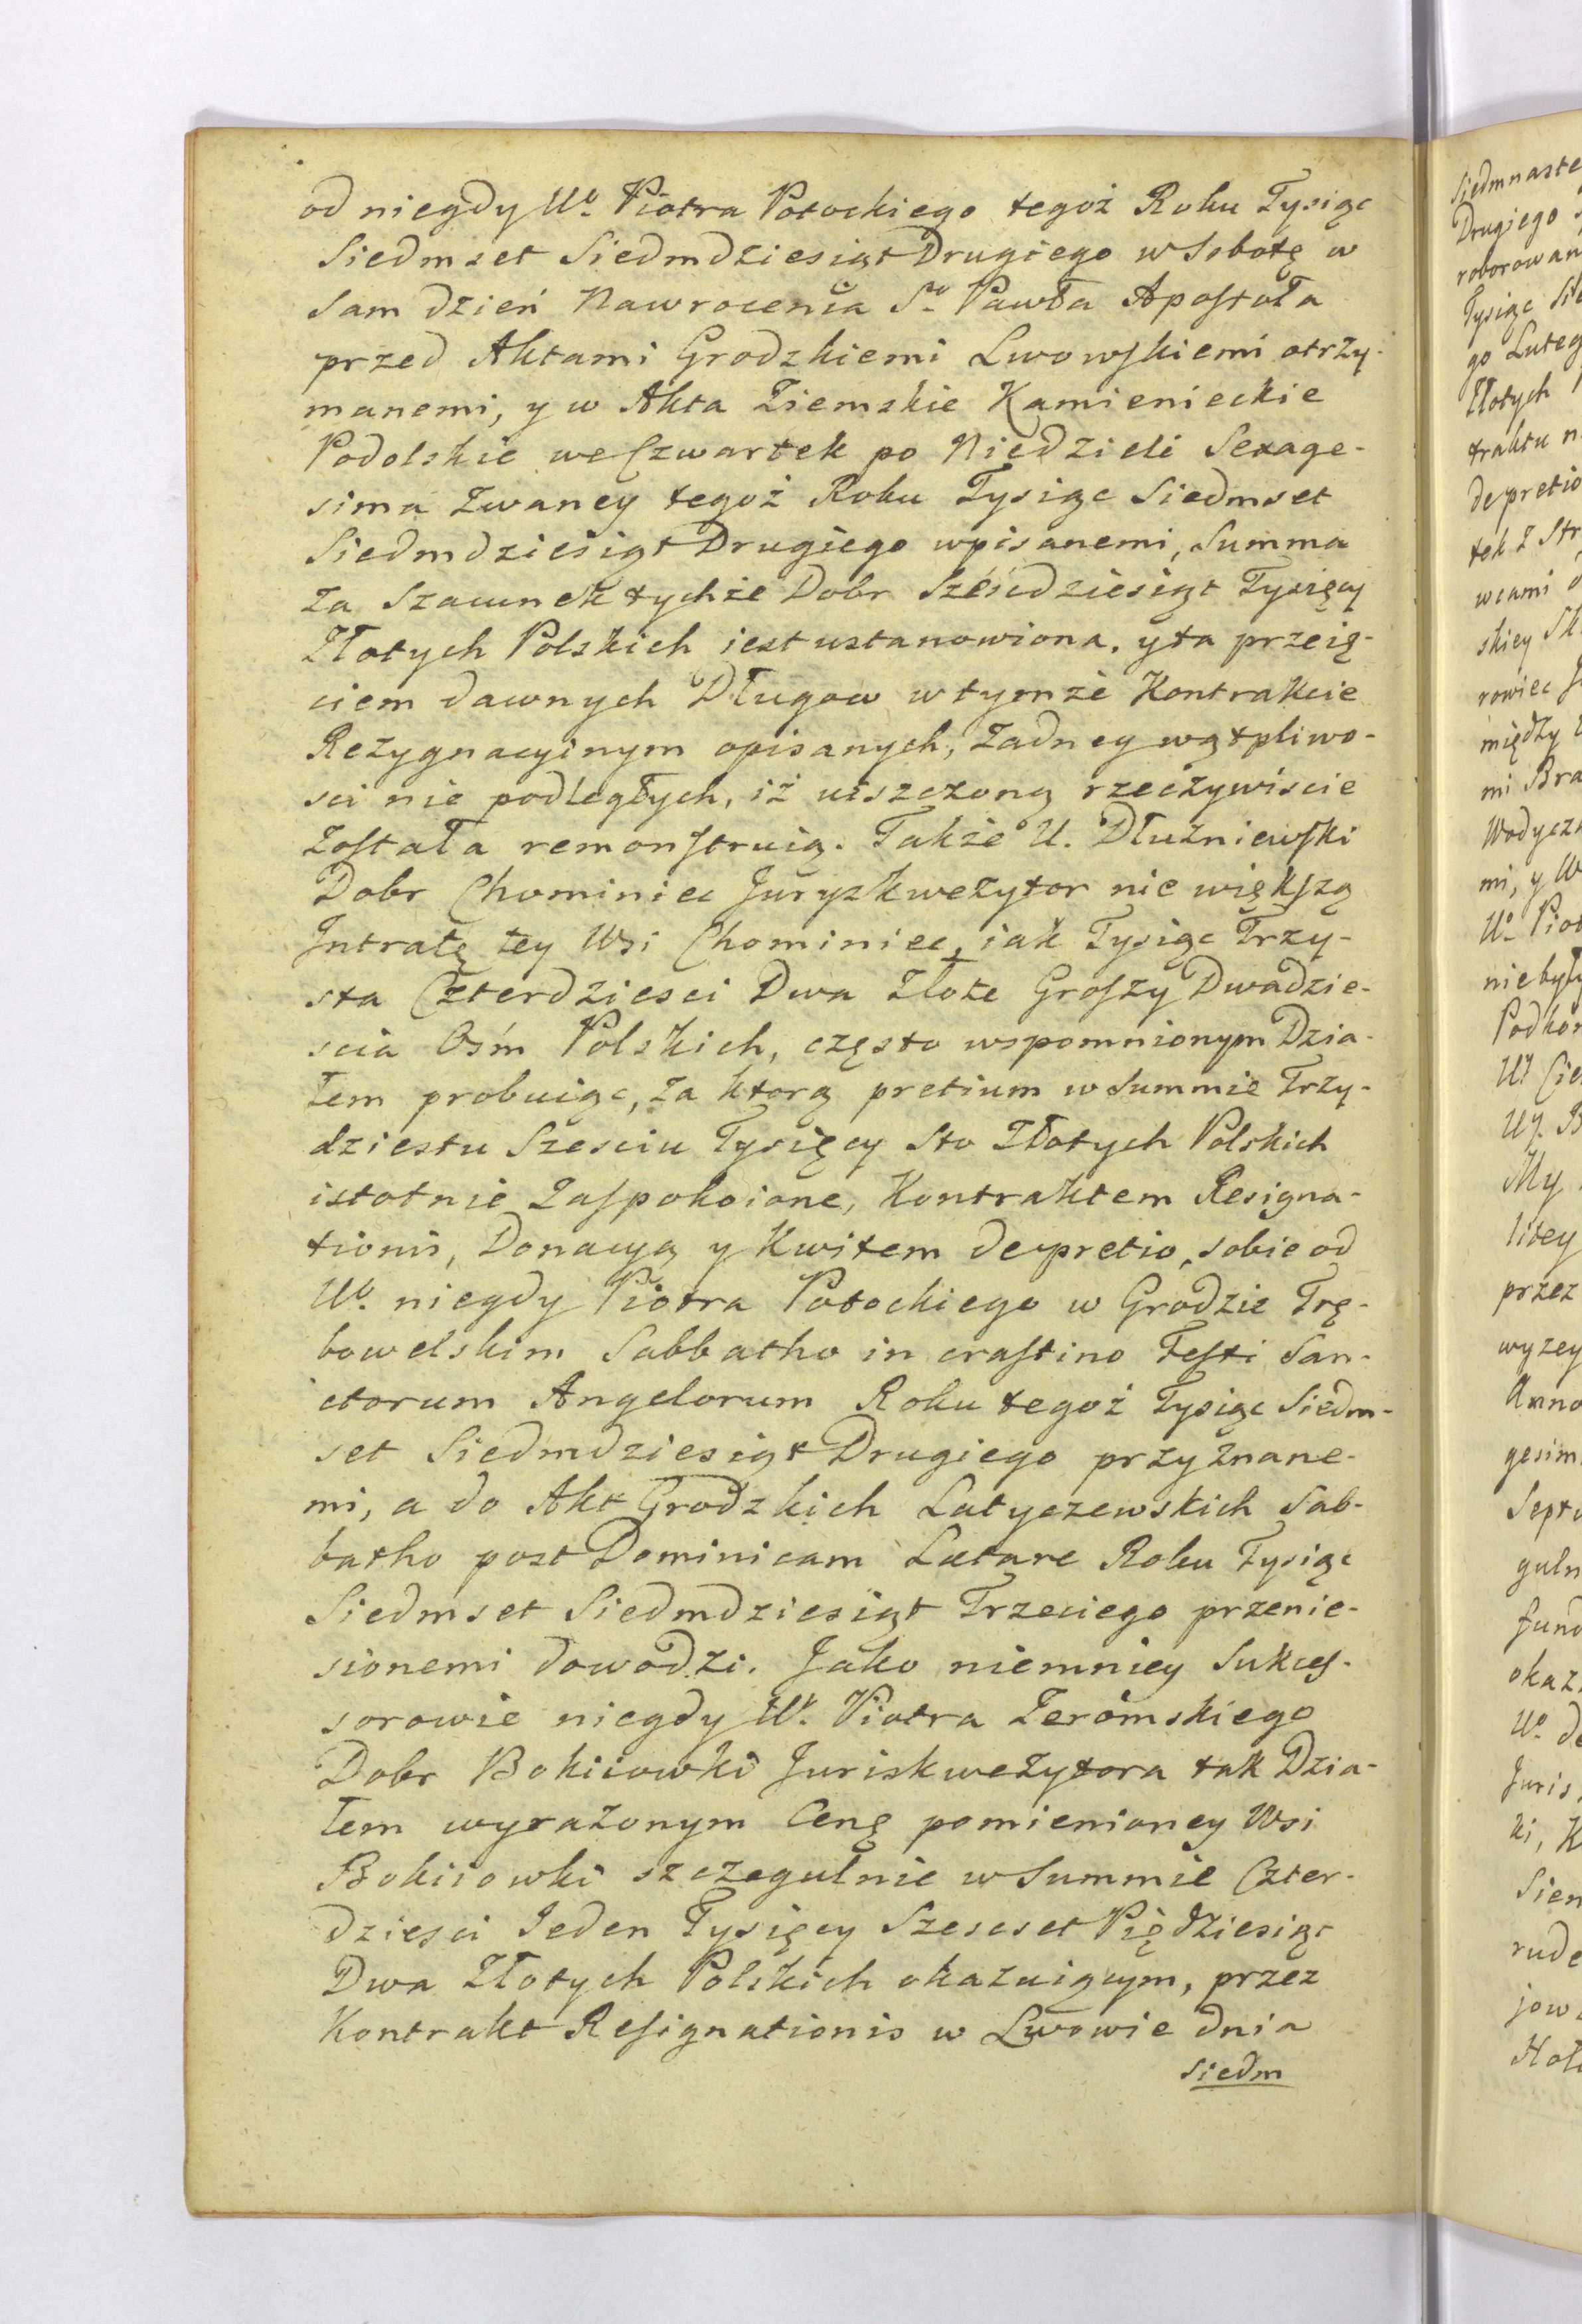 od niegdy Wo. Piotra Potockiego tegoż Roku Tysiąc
Siedmset Siedmdziesiąt Drugiego w Sobotę w
sam dzień Nawrocenia Sgo Pawła Apostoła
przed Aktami Grodzkiemi Lwowskiemi otrzy-
manemi, y w Akta Ziemskie Kamienieckie
Podolskie we Czwartek po Niedzieli Sexage-
sima Zwaney tegoż Roku Tysiąc Siedmset
Siedmdziesiąt Drugiego wpisanemi, Summa
za Szacunek tychże Dobr Sześćdziesiąt Tysięcy
Złotych Polskich iest ustanowiona, y ta przeię-
ciem dawnych Długow w tymże Kontrakcie
Rezygnacyinym opisanych, żadney wątpliwo-
sci nie podległych, iż uiszczoną rzeczywiscie
została remonstruią. Także U. Dłużniewski
Dobr Chominiec Juryskwezytor nie większą
Intratę tey Wsi Chominiec, iak Tysiąc Trzy-
sta Czterdziesci Dwa Złote Groszy Dwadzie-
scia Ośm Polskich, często wspomnionym Dzia-
łem probuiąc, za ktorą pretium w Summie Trzy-
dziestu Szesciu Tysięcy Sto Złotych Polskich
istotnie zaspokoione, Kontraktem Resigna-
tionis, Donacyą y Kwitem de pretio, sobie od
Wo. niegdy Piotra Potockiego w Grodzie Trę-
bowelskim Sabbatho in crastino Festi San-
ctorum Angelorum Roku tegoż Tysiąc Siedm-
set Siedmdziesiąt Drugiego przyznane-
mi, a do Akt Grodzkich Latyczewskich Sab-
batho post Dominicam Lætare Roku Tysiąc
Siedmset Siedmdziesiąt Trzeciego przenie-
sionemi dowodzi. Jako niemniey Sukces-
sorowie niegdy W. Piotra Żeromskiego
Dobr Bokiiowki Juriskwezytora tak Dzia-
łem wyrażonym Cenę pomienioney Wsi
Bokiiowki szczegulnie w Summie Czter-
dziesci Jeden Tysięcy Szescset Piędziesiąt
Dwa Złotych Polskich okazuiącym, przez
Kontrakt Resignationis w Lwowie dnia
siedm
Siedmnaste
Drugiego
roborowan
Tysiąc
go Luteg
Złotych
traktu
de pretio
tek z Str
wcami
skiey
rowiec
między
mi Bra
Wodycz
mi, y W
Wo Piot
nie były
Podkor
Cie
My
litey
przez
wyzey
Anno
gesim
Sept
guln
fund
okaz
Wo de
Juris
ki, K
Sien
rude
jow
Hoł